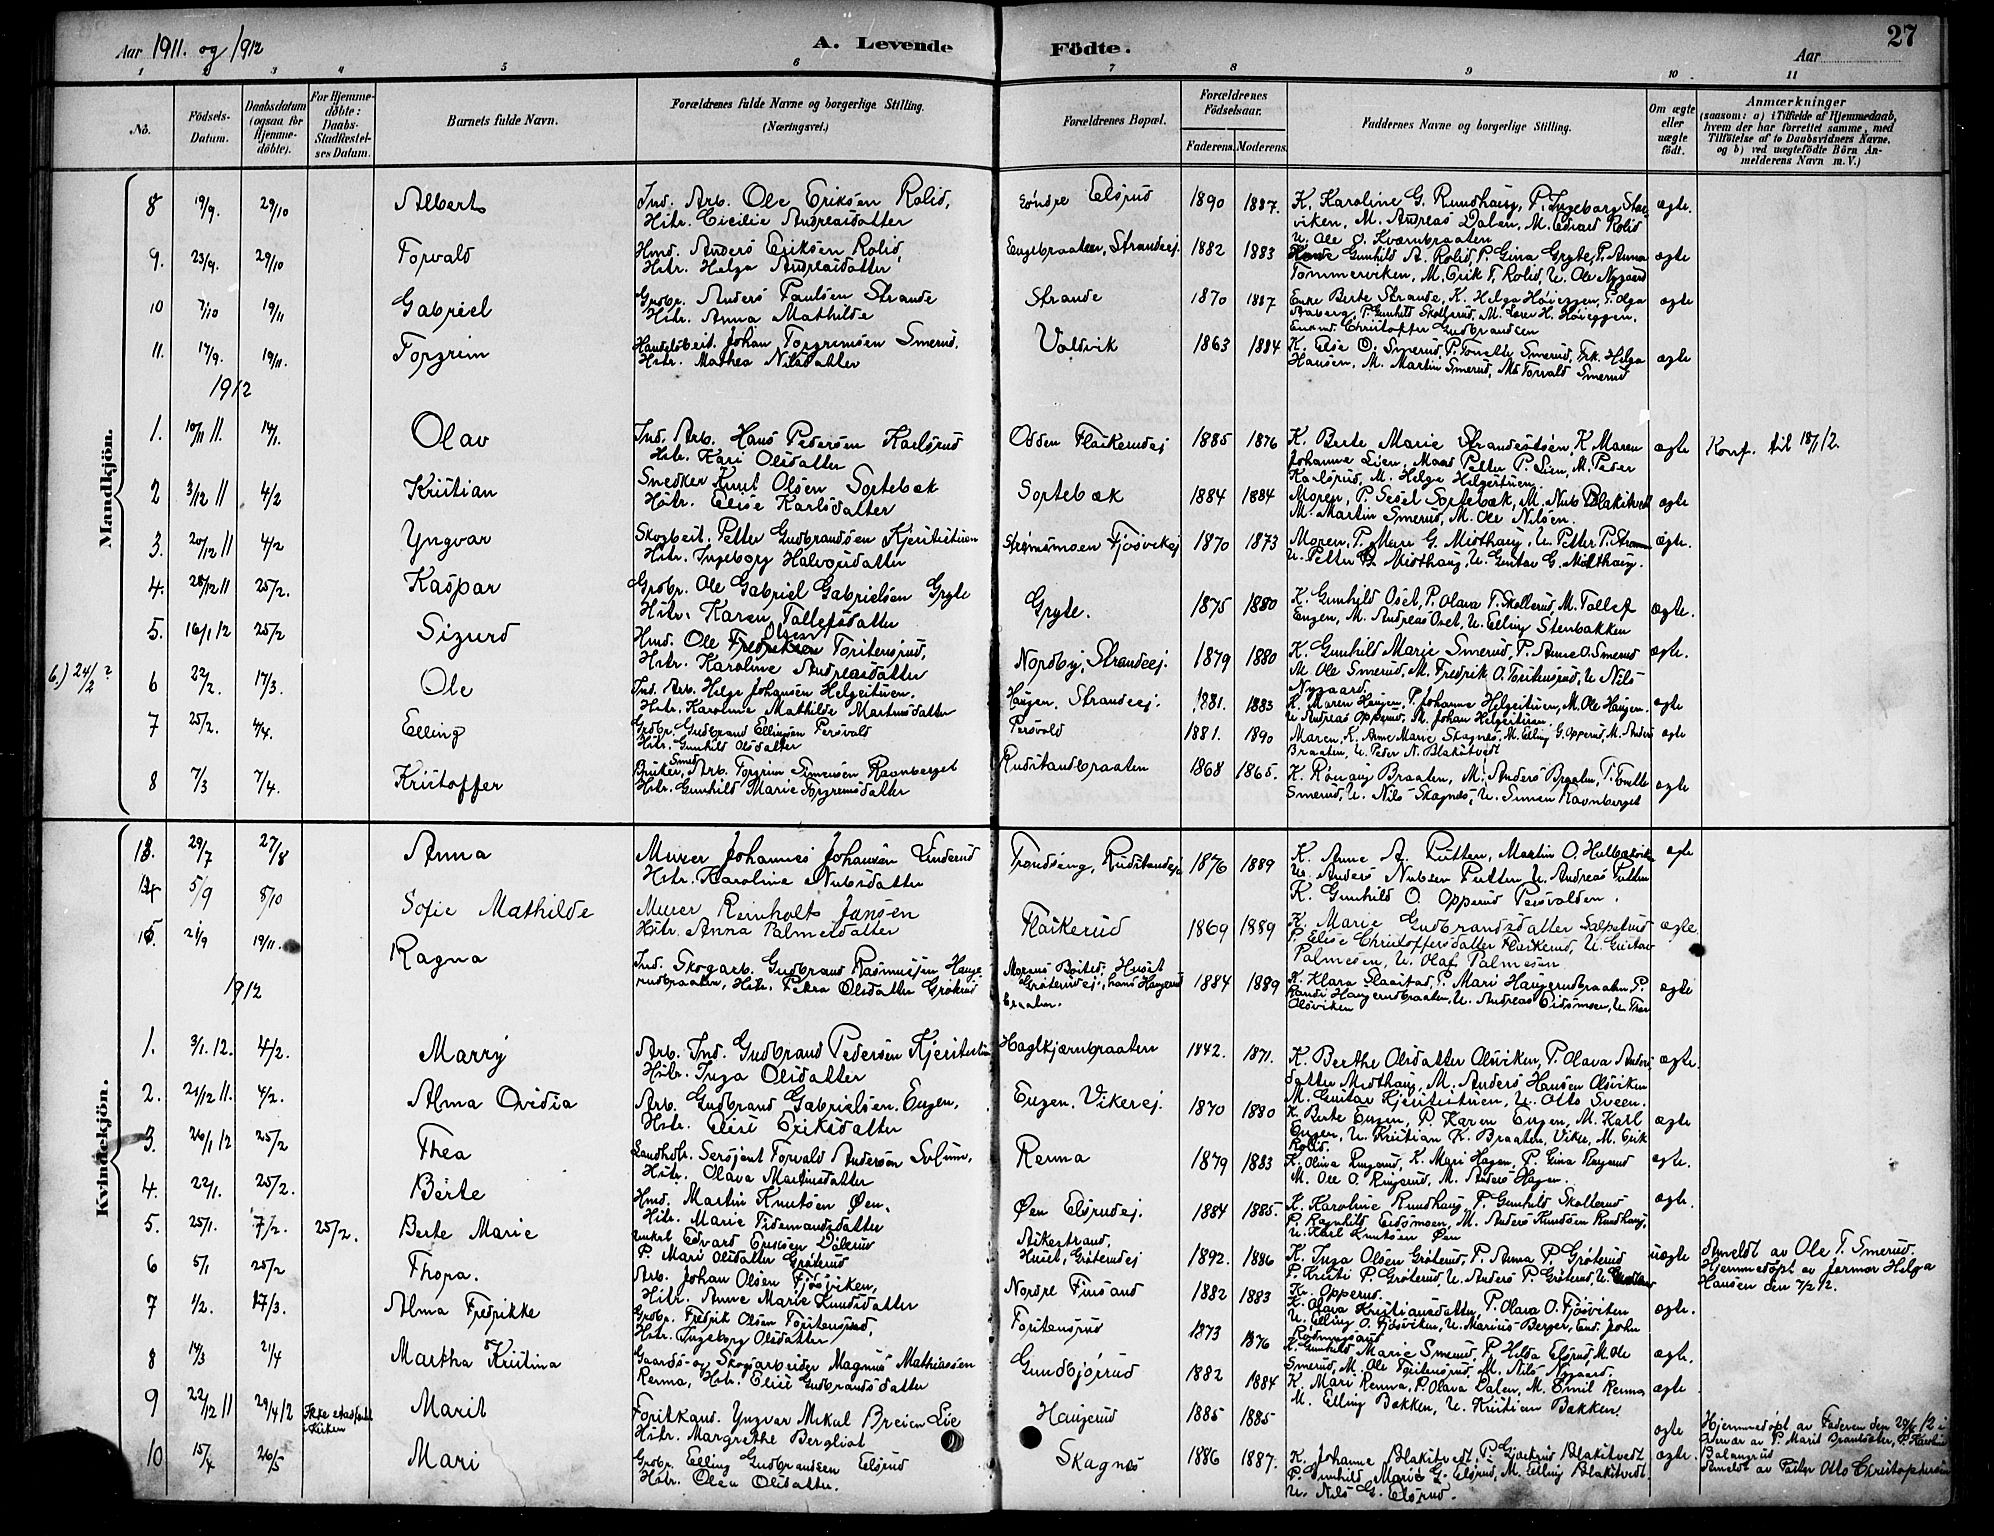 Aar 1911. og 1912
A. Levende Födte.
Aar
27
1 2 3 4 5 6 7 8 9 10 11
No.
Födsels-Datum.
Daabsdatum (ogsaa for Hjemmedöbte).
For Hjemmedöbte: Daabs-Stadfæstelses Datum.
Barnets fulde Navn.
Forældrenes fulde Navne og borgerlige Stilling. (Næringsvei.)
Forældrenes Bopæl.
Forældrenes Födselsaar.
Faderens. Moderens.
Faddernes Navne og borgerlige Stilling.
Om ægte eller uægte födt.
Anmærkninger (saasom: a) i Tilfælde af Hjemmedaab, hvem der har forrettet samme, med Tilföielse af to Daabsvidners Navne, og b) ved uægtefödte Börn Anmelderens Navn m.V.)
Mandkjön.
8 19/9. 29/10 Albert Ind. Arb. Ole Eriksen Rolid, Söndre Elsrud 1890 1887. K. Karoline G. Rundhaug, P. Ingeborg ægte.
Hstr. Cicilie Andreasdatter viken, M. Andreas Dalen, M. Edvard Rolid
U. Ole O. Kværnbraaten
9. 23/9. 29/10 Torvald Hmd. Anders Eriksen Rolid, Engebraaten, Strandeej. 1882 1883 Gunhild A. Rolid, P. Gina Gryte, P. Anna ægte
Hstr. Helga Andreasdatter Tömmerviken, M. Erik T. Rolid, U. Ole Nygaard
10 7/10 19/11 Gabriel Grdbr. Anders Paulsen Strande Strande 1870 1887 Enke Berte Strande, K. Helga Höieggen, P. Olga ægte
Hstr. Anna Mathilde Aaberg, P. Gunhild Skollerud, M. Lars H. Höieggen,
Christoffer Gudbrandsen
11. 17/9. 19/11. Torgrim Johan Torgrimsen Smerud. Valdvik 1863 1884 K. Else O. Smerud, P. Tomelle Smerud, Frk. Helga ægte
Hstr. Mathea Nilsdatter Hansen, M. Martin Smerud, M. Torvald Smerud
1912
1. 10/11 11. 14/1. Olav Ind. Arb. Hans Pedersen Karlsrud Odden Flaskerudej 1885 1876 K. Berte Marie Strandesötsen, K. Maren ægte Konf. til 18/1 12.
Hstr. Kari Olsdatter Johanne Lien, Petter P. Lien, M. Peder
Karlsrud, M. Helge Helgestuen.
2 3/12 11 4/2 Kristian Snedker Knut Olsen Sortebæk Sortebæk 1884 1884 Moren, P. Sesel Sortebæk, M. Blakstvedt ægte
Hstr. Elise Karlsdatter M. Martin Smerud, M. Ole Nilsen.
3. 20/12 11 4/2 Yngvar Skogbest. Petter Gudbrandsen Kjeristuen Strömsmoen Fjösvikej 1870 1873 Moren, P. Mari G. Midthaug, U. Petter P. Strömm ægte.
Hstr. Ingeborg Halvorsdatter U. Petter Midthaug, U. Gustav G. Midthaug.
4. 28/12 11 25/2. Kaspar Grdbr. Ole Gabriel Gabrielsen Gryte Gryte. 1875 1880 K. Gunhild Oset, P. Olava T. Skollerud, M. Tollef ægte.
Hstr. Karen Tollefsdatter Engen, M. Andreas Oset, U. Elling Stenbakken
5. 16/1 12 25/2 Sigurd Hmd. Ole Olsen Toritensrud, Nordby, Strandeej. 1879 1880 K. Gunhild Marie Smerud, P. Anne O. Smerud ægte.
Hstr. Karoline Andreasdatter M. Ole Smerud, M. Fredrik O. Toritensrud, U. Nils
Nygaard.
6.) 24/2?
6 22/2. 17/3. Ole Ind. Arb. Helge Johansen Helgestuen. Haugen, Strandeej. 1881. 1883 K. Maren Haugen, P. Johanne Helgestuen, M. Ole Haugen. ægte
Hstr. Karoline Mathilde Martinsdatter U. Andreas Opperud, M. Johan Helgestuen.
7 25/2. 4/4. Elling Grdbr. Gudbrand Ellingsen Persvald Persvald 1881. 1890 Maren, K. Anne Marie Skagnes, M. Elling G. Opperud, M. Anders ægte
Hstr. Gunhild Olsdatter Braaten, U. Peter N. Blakstvedt
8 7/3 7/4. Kristoffer Arb. Torgrim Simensen Ravnberget Rudstandbraaten 1868 1865. K. Rönnaug Braaten, M. Anders Braaten, P. Tomelle ægte
Hstr. Gunhild Marie Torgrimsdatter Smerud, U. Nils Skagnes, U. Simen Ravnberget
Kvindekjön.
13. 29/7 27/8 Anna Murer Johannes Johansen Trondseng, Rudstandej 1876 1889 K. Anne A. Putten, Martin O. ægte
Hstr. Karoline Nubsdatter U. Anders Nubsen Putten, U. Andreas Putten
14 5/9 8/10 Sofie Mathilde Murer Reinholt Jansen K. Gunhild O. Opperud Persvalden.
Hstr. Anna Palmesdatter Flaskerud 1869 1889 K. Marie Gudbrandsdatter Salperud ægte.
P. Elise Christoffersdatter Flaskerud, U. Gustav
Palmesen, U. Olaf Palmesen
15 21/9 19/11. Ragna Ind. Skogarb. Gudbrand Rasmussen Hauge Morens Bosted: Huset 1884 1889 K. Klara Slaastad, P. Mari Haugerudbraaten, P. ægte
rudbraaten, Hstr. Petra Olsdatter Gröterud Gröterudej., hans Haugerud Randi Haugerudbraaten, U. Andreas Eidsmoen, U. Thor
braaten. Olsviken
1912
1. 3/1. 12. 4/2. Marry Arb. Ind. Gudbrand Pedersen Haglkjærnbraaten 1842. 1871. K. Berthe Olsdatter Olsviken, P. Olava Anders ægte.
Hstr. Inga Olsdatter datter Midthaug, M. Anders Hansen Olsviken
M. Gustav Kjeristuen, U. Otto Sveen.
2. 21/12 11. 4/2. Alma Ovidia Arb. Gudbrand Gabrielsen Engen, Engen, Vikerej. 1870 1880 K. Berte Engen, P. Karen Engen, M. Karl ægte
Hstr. Elise Eriksdatter Engen, U. Kristian K. Braaten, Viker, M. Erik
Rolid.
3. 26/1 12 25/2 Thea Landholr. Sersjent Torvald Andersen Solum, Renna 1879 1883 K. Olina Ringerud, K. Mari Hagen, P. Gina Ringerud ægte.
Hstr. Olava Martinsdatter M. Ole O. Ringerud, M. Anders Hagen.
4. 22/1. 25/2. Berte Hmd. Martin Knutsen Øen. Øen Elsrudej. 1884 1885. K. Karoline Rundhaug, P. Gunhild Skollerud ægte.
Hstr. Marie Tidemandsdatter P. Ragnhild Eidsmoen, M. Anders Knudsen Rundhaug,
U. Karl Knutsen Øen
5. 25/1. 7/2. 25/2. Berte Marie Unkrl Edvard Eriksen Dölerud Aikestrand, 1892. 1886 K. Inga Olsen Gröterud, P. Anna P. Gröterud uægte Anmeldt av Ole T. Smerud.
P. Mari Olsdatter Gröterud Huset, Gröterudej P. Kristi P. Gröterud, U. Anders P. Gröterud, Hjemmedöpt av jormor Helga
Hansen den 7/2 12.
6 5/1 25/2 Thora. Arb. Johan Olsen Fjösviken, Nordre Fiusand 1882 1883 Kr. Opperud.
Hstr. Anne Marie Knudsdatter K. Olava Kristiansdatter, P. Olava O. Fjösviken ægte.
7 1/2. 17/3. Alma Fredrikke Grdbr. Fredrik Olsen Toritensrud, Toritensrud 1873 1876 U. Elling O. Fjösviken, U. Marius Berger, John
Hstr. Ingeborg Olsdatter K. Gunhild Marie Smerud, P. Hilda Elsrud, M. Ole ægte.
8 14/3 21/4 Martha Kristina Gaards- og Skogsarbeider Magnus Mathiassen Gundbjörrud 1882 1884 Smerud, M. Ole Toritensrud, M. Nils Nygaard.
Renna, Hstr. Elise Gudbrandsdatter K. Mari Renna, P. Olava Dalen, M. Emil Renna ægte
M. Elling Bakken, U. Kristian Bakken.
9 22/12 11 29/4 12 Ikke stadfæstet i Kirken Marit Forstkand. Yngvar Mikal Breien Lie Haugerud 1885 1885 ægte Hjemmedöpt av Faderen den 29/4 12 i
Hstr. Margrethe Bergliot nærvær av P. Marit Brandsæter, P. Karoline
10 15/4 26/5 Mari Grdbr. Elling Gudbrandsen Elsrud Skagnes 1886 1887. K. Johanne Blakstvedt, P. Gjertrud Blakstvedt ægte.
Hstr. Olea Olsdatter. P. Gunhild Marie G. Elsrud, M. Elling Blakstvedt. Anmeldt av Pastor Otto Christophersen
U. Nils G. Elsrud.